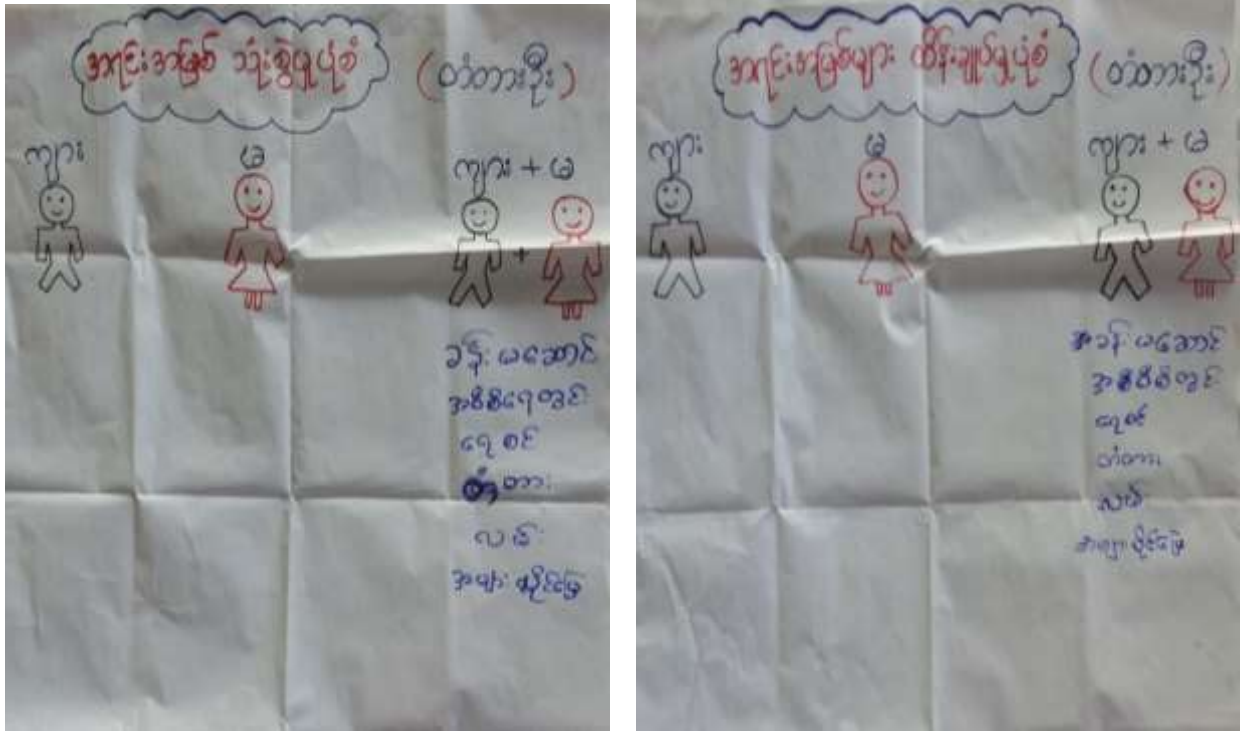 အရင်းအမြစ် သုံးစွဲမှုပုံစံ (တံတားဦး)
ကျား မ ကျား + မ
+
ခန်းမဆောင်
အစိစိရေတွင်း
ရေစင်
တံတား
လမ်း
အများပိုင်မြေ
အရင်းအမြစ်များ ထိန်းချုပ်မှုပုံစံ (တံတားဦး)
ကျား မ ကျား + မ
အခန်းမဆောင်
အစိစိတွင်း
ရေစင်
တံတား
လမ်း
အများပိုင်မြေ